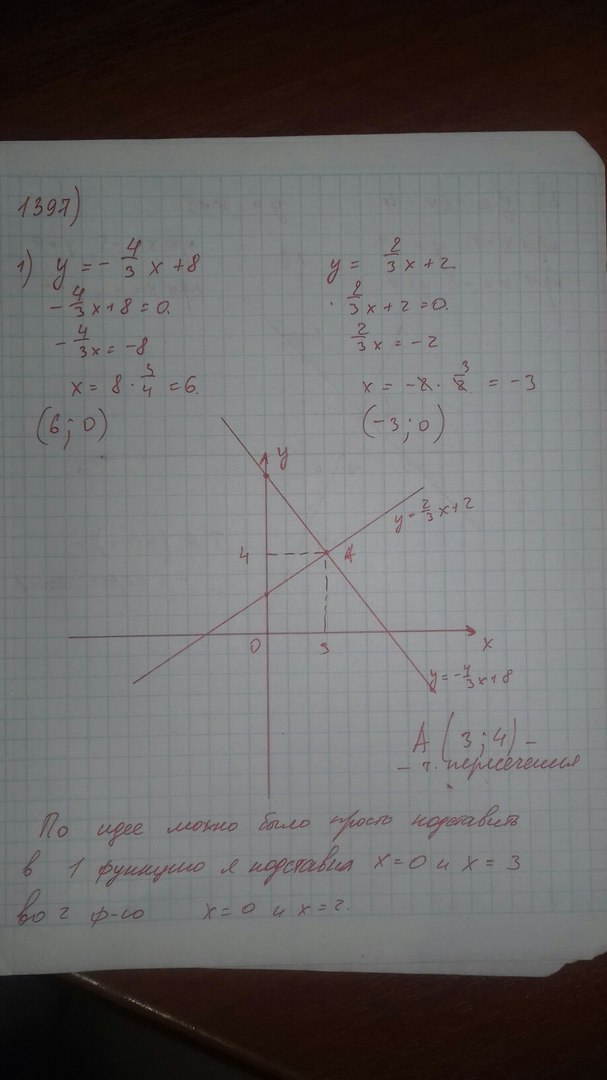 1397)
1) y = -4/3 x + 8
-4/3 x + 8 = 0.
-4/3 x = -8
x = 8 · 3/4 = 6.
(6; 0)
y = 2/3 x + 2
2/3 x + 2 = 0.
2/3 x = -2
x = -2 · 3/2 = -3
(-3; 0)
y
y = 2/3 x + 2
4
A
0
3
x
y = -4/3 x + 8
A (3; 4) -
- т. пересечения
По идее можно было просто подставить
в 1 функцию я подставил x = 0 и x = 3
во 2 ф-ю x = 0 и x = 2.